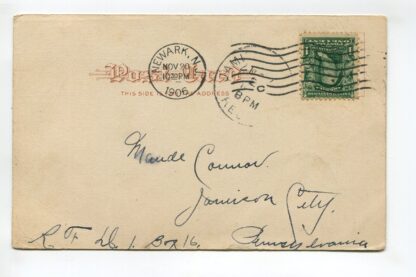 Post Card
THIS SIDE ADDRESS
NEWARK, N.J.
NOV 20
1906
Maude Connor
Jamison City,
R F D 1 Box 16, Pennsylvania